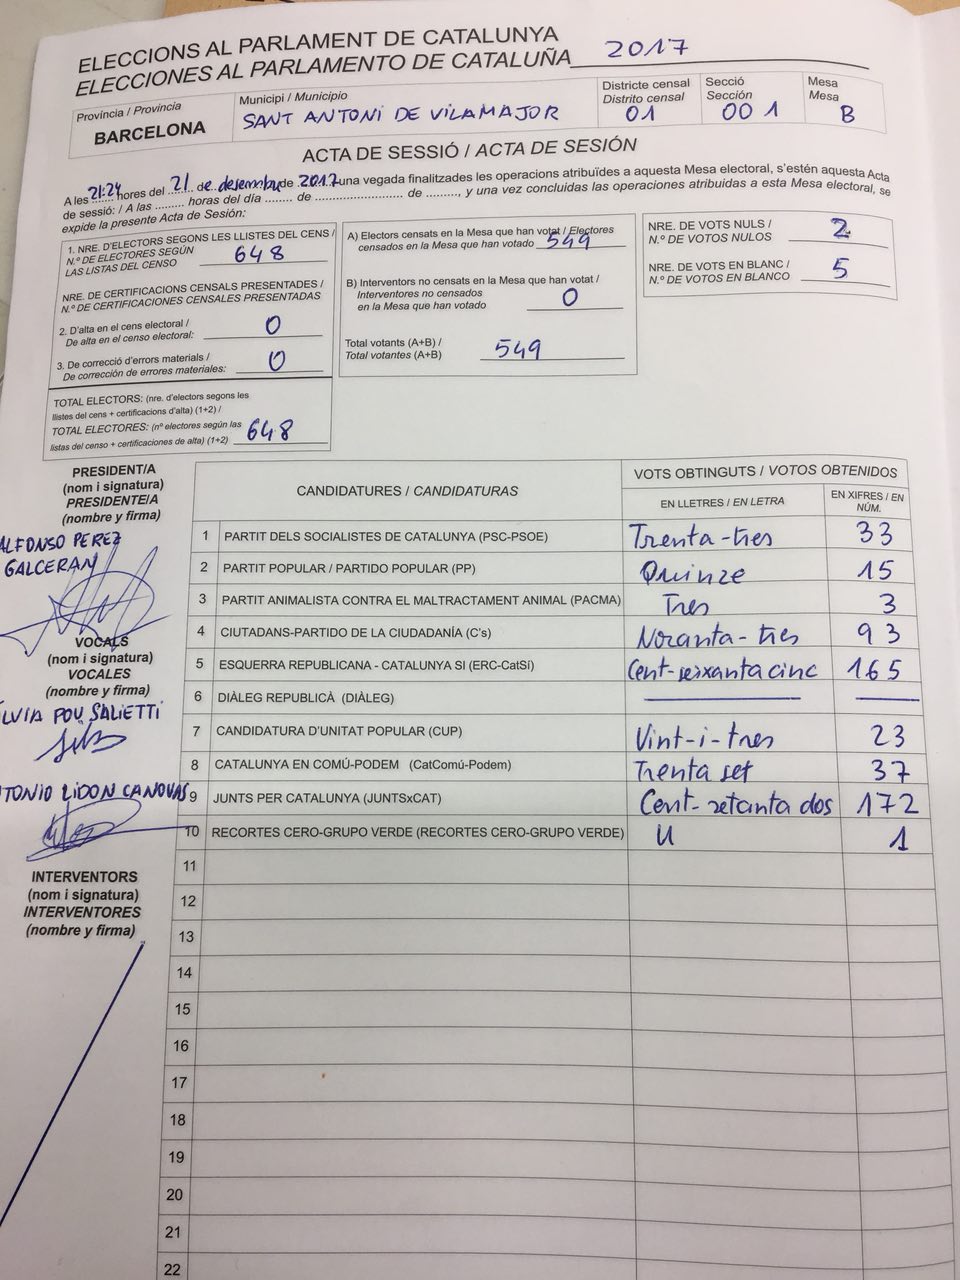 ELECCIONS AL PARLAMENT DE CATALUNYA
ELECCIONES AL PARLAMENTO DE CATALUÑA 2017
Província / Provincia
BARCELONA
Municipi / Municipio
SANT ANTONI DE VILAMAJOR
Districte censal
Distrito censal
01
Secció
Sección
001
Mesa
Mesa
B
ACTA DE SESSIÓ / ACTA DE SESIÓN
A les 21:24 hores del 21 de desembre de 2017 una vegada finalitzades les operacions atribuïdes a aquesta Mesa electoral, s'estén aquesta Acta
de sessió: / A las ......... horas del día ........ de ........................... de ........., y una vez concluidas las operaciones atribuidas a esta Mesa electoral, se
expide la presente Acta de Sesión:
1. NRE. D'ELECTORS SEGONS LES LLISTES DEL CENS /
N.º DE ELECTORES SEGÚN
LAS LISTAS DEL CENSO 648
NRE. DE CERTIFICACIONS CENSALS PRESENTADES /
N.º DE CERTIFICACIONES CENSALES PRESENTADAS
2. D'alta en el cens electoral /
De alta en el censo electoral: 0
3. De correcció d'errors materials /
De corrección de errores materiales: 0
TOTAL ELECTORS: (nre. d'electors segons les
llistes del cens + certificacions d'alta) (1+2) /
TOTAL ELECTORES: (nº electores según las
listas del censo + certificaciones de alta) (1+2) 648
A) Electors censats en la Mesa que han votat / Electores
censados en la Mesa que han votado 549
B) Interventors no censats en la Mesa que han votat /
Interventores no censados
en la Mesa que han votado 0
Total votants (A+B) /
Total votantes (A+B) 549
NRE. DE VOTS NULS /
N.º DE VOTOS NULOS 2
NRE. DE VOTS EN BLANC /
N.º DE VOTOS EN BLANCO 5
PRESIDENT/A
(nom i signatura)
PRESIDENTE/A
(nombre y firma)
ALFONSO PEREZ
GALCERAN
VOCALS
(nom i signatura)
VOCALES
(nombre y firma)
LVIA POU SALIETTI
TONIO LIDON CANOVAS
INTERVENTORS
(nom i signatura)
INTERVENTORES
(nombre y firma)
CANDIDATURES / CANDIDATURAS
VOTS OBTINGUTS / VOTOS OBTENIDOS
EN LLETRES / EN LETRA
EN XIFRES / EN
NÚM.
1 PARTIT DELS SOCIALISTES DE CATALUNYA (PSC-PSOE) Trenta-tres 33
2 PARTIT POPULAR / PARTIDO POPULAR (PP) Quinze 15
3 PARTIT ANIMALISTA CONTRA EL MALTRACTAMENT ANIMAL (PACMA) Tres 3
4 CIUTADANS-PARTIDO DE LA CIUDADANÍA (C's) Noranta-tres 93
5 ESQUERRA REPUBLICANA - CATALUNYA SI (ERC-CatSí) Cent-seixanta cinc 165
6 DIÀLEG REPUBLICÀ (DIÀLEG)
7 CANDIDATURA D'UNITAT POPULAR (CUP) Vint-i-tres 23
8 CATALUNYA EN COMÚ-PODEM (CatComú-Podem) Trenta set 37
9 JUNTS PER CATALUNYA (JUNTSxCAT) Cent-setanta dos 172
10 RECORTES CERO-GRUPO VERDE (RECORTES CERO-GRUPO VERDE) U 1
11
12
13
14
15
16
17
18
19
20
21
22